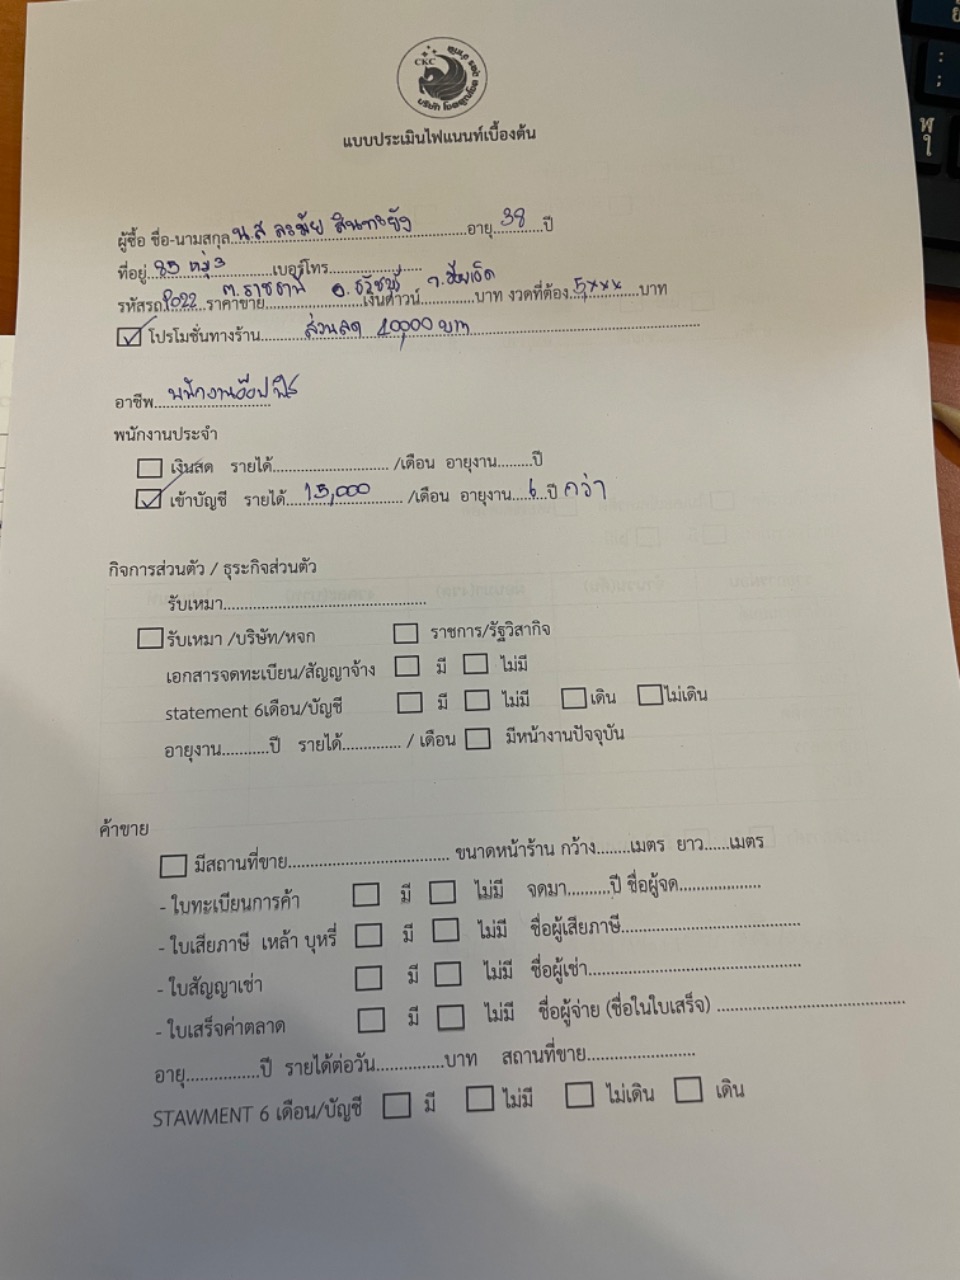 CKC
แบบประเมินไฟแนนท์เบื้องต้น
ผู้ซื้อ ชื่อ-นามสกุล..น.ส ละมัย สินทะยัง..อายุ..38..ปี
ที่อยู่..85 หมู่3..เบอร์โทร..........
ต.ราชธานี อ.ธวัชบุรี จ.ร้อยเอ็ด
รหัสรถ..2022..ราคาขาย..........เงินดาวน์..........บาท งวดที่ต้อง..5xxx..บาท
☑ โปรโมชั่นทางร้าน..ส่วนลด 10,000 บาท..
อาชีพ..พนักงานอ๊อปฟิส
พนักงานประจำ
☐ เงินสด รายได้........../เดือน อายุงาน.........ปี
☑ เข้าบัญชี รายได้..15,000../เดือน อายุงาน..6..ปี กว่า
กิจการส่วนตัว / ธุระกิจส่วนตัว
รับเหมา..........
☐ รับเหมา /บริษัท/หจก ☐ ราชการ/รัฐวิสากิจ
เอกสารจดทะเบียน/สัญญาจ้าง ☐ มี ☐ ไม่มี
statement 6เดือน/บัญชี ☐ มี ☐ ไม่มี ☐ เดิน ☐ ไม่เดิน
อายุงาน..........ปี รายได้.......... / เดือน ☐ มีหน้างานปัจจุบัน
ค้าขาย
☐ มีสถานที่ขาย.......... ขนาดหน้าร้าน กว้าง........เมตร ยาว......เมตร
- ใบทะเบียนการค้า ☐ มี ☐ ไม่มี จดมา..........ปี ชื่อผู้จด..........
- ใบเสียภาษี เหล้า บุหรี่ ☐ มี ☐ ไม่มี ชื่อผู้เสียภาษี..........
- ใบสัญญาเช่า ☐ มี ☐ ไม่มี ชื่อผู้เช่า..........
- ใบเสร็จค่าตลาด ☐ มี ☐ ไม่มี ชื่อผู้จ่าย (ชื่อในใบเสร็จ) ..........
อายุ..........ปี รายได้ต่อวัน..........บาท สถานที่ขาย..........
STAWMENT 6 เดือน/บัญชี ☐ มี ☐ ไม่มี ☐ ไม่เดิน ☐ เดิน